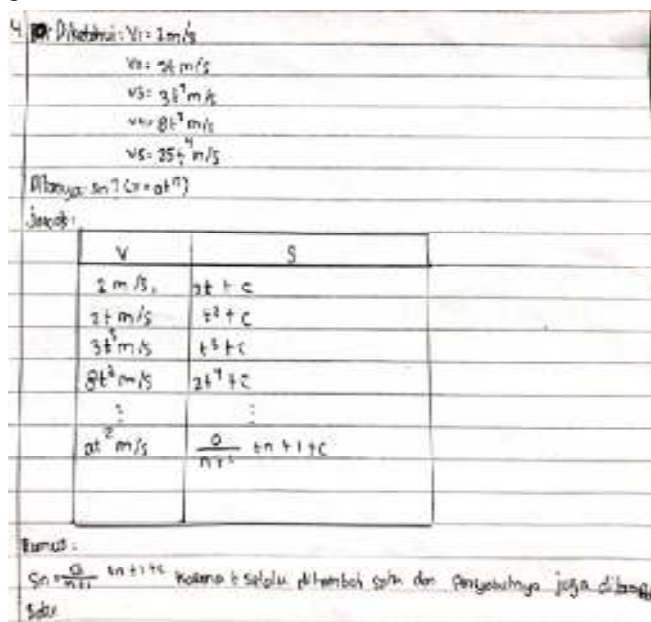 4. Diketahui: V1 = 2 m/s
V2 = 2t m/s
V3 = 3t² m/s
V4 = 8t³ m/s
V5 = 25t⁴ m/s
Ditanya: Sn? (v = atⁿ)
Jawab:
V S
2 m/s, 2t + C
2t m/s t² + C
3t² m/s t³ + C
8t³ m/s 2t⁴ + C
⋮ ⋮
at m/s a/n+1 tn + 1 + C
Rumus:
Sn = a/n+1 tn+1+c karena t selalu ditambah satu dan penyebutnya juga ditambah
satu